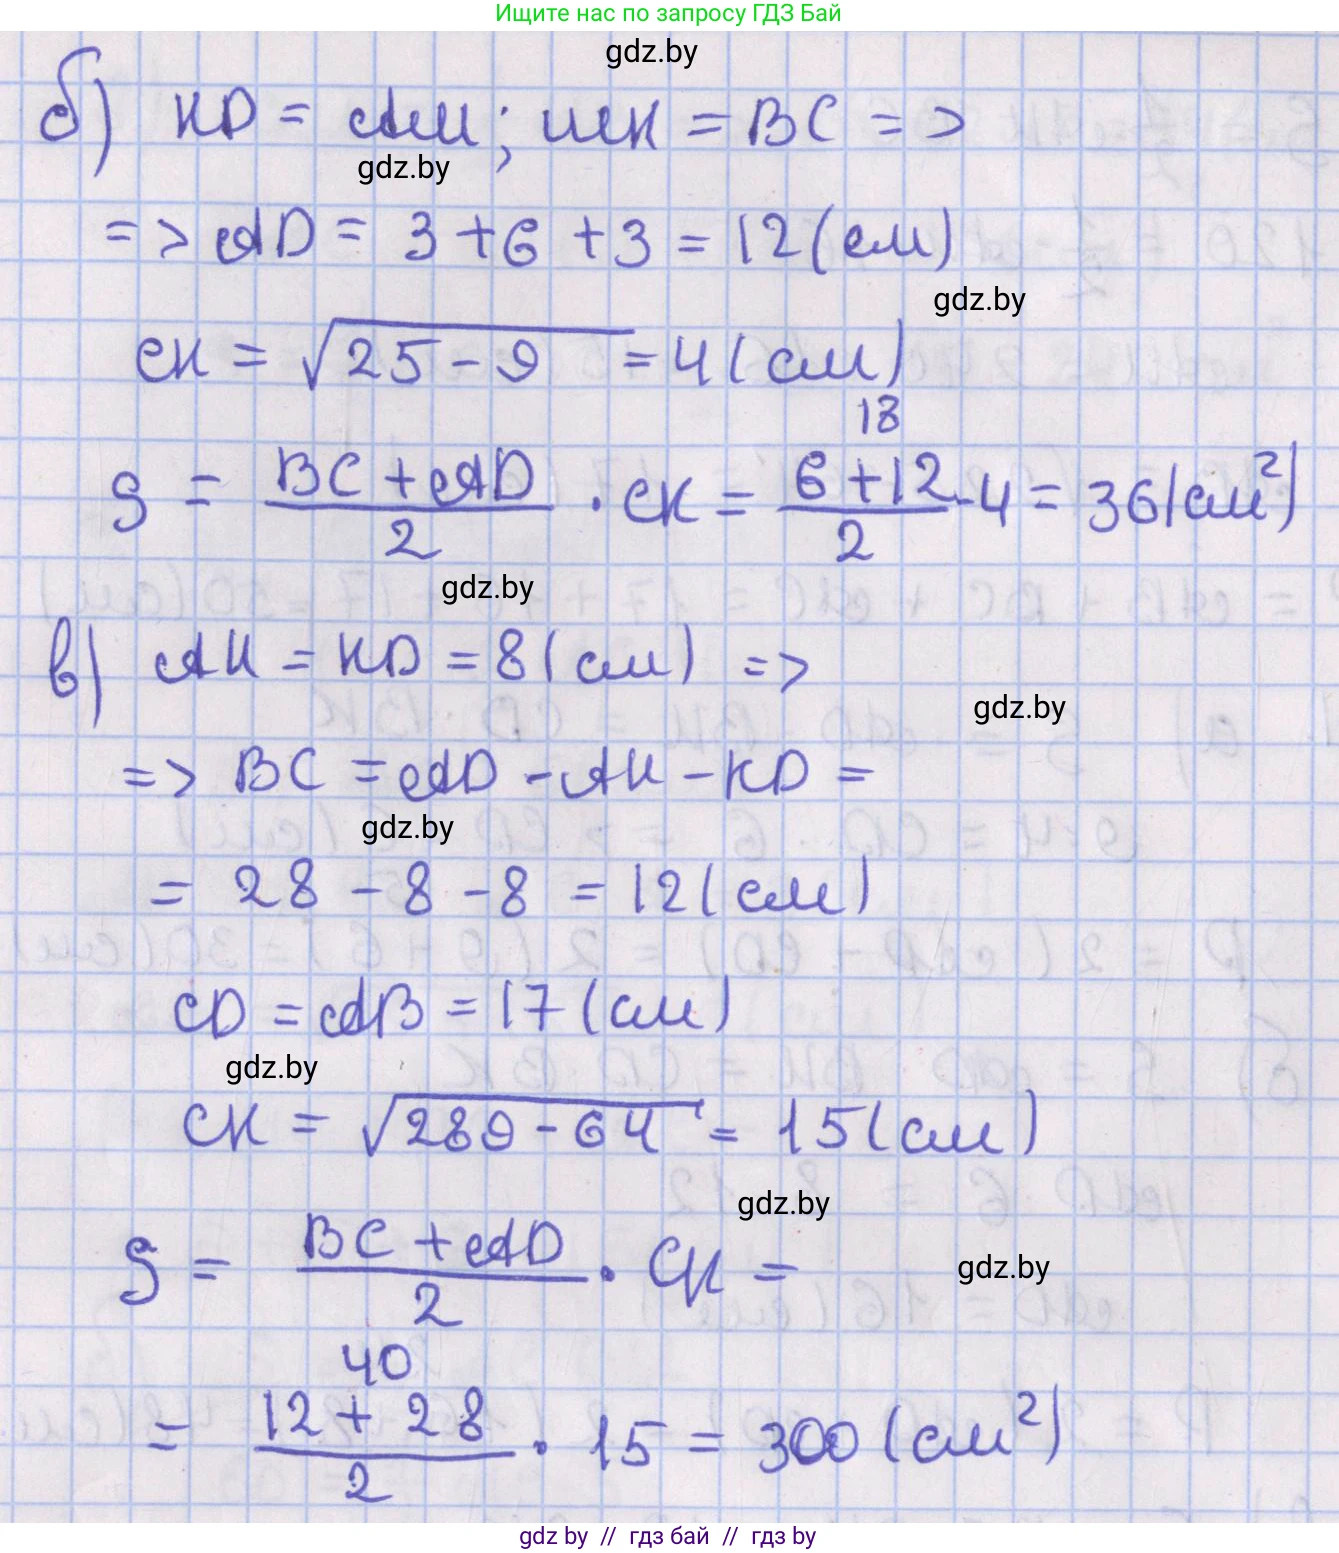 Ищите нас по запросу ГДЗ Бай
gdz.by
б) KD = AM; MK = BC =>
gdz.by
=> AD = 3 + 6 + 3 = 12 (см)
gdz.by
CK = √25 - 9 = 4 (см)
18
S = BC + AD / 2 · CK = 6 + 12 / 2 · 4 = 36 (см²)
gdz.by
в) AK = KD = 8 (см) =>
gdz.by
=> BC = AD - AK - KD =
gdz.by
= 28 - 8 - 8 = 12 (см)
CD = AB = 17 (см)
gdz.by
CK = √289 - 64 = 15 (см)
gdz.by
S = BC + AD / 2 · CK =
gdz.by
40
= 12 + 28 / 2 · 15 = 300 (см²)
gdz by // гдз бай // гдз by